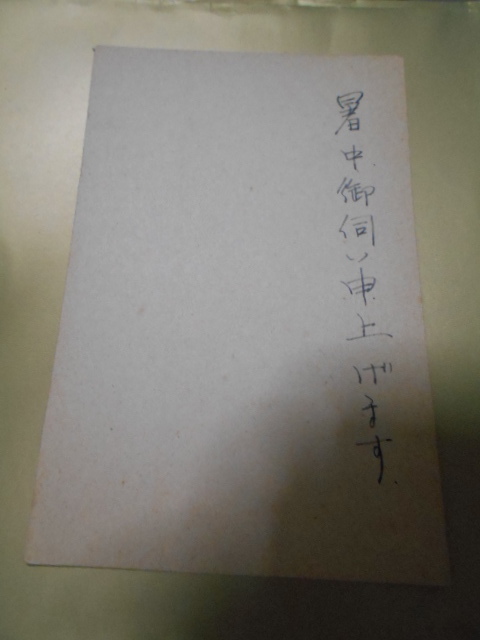 暑中御伺い申上げます。